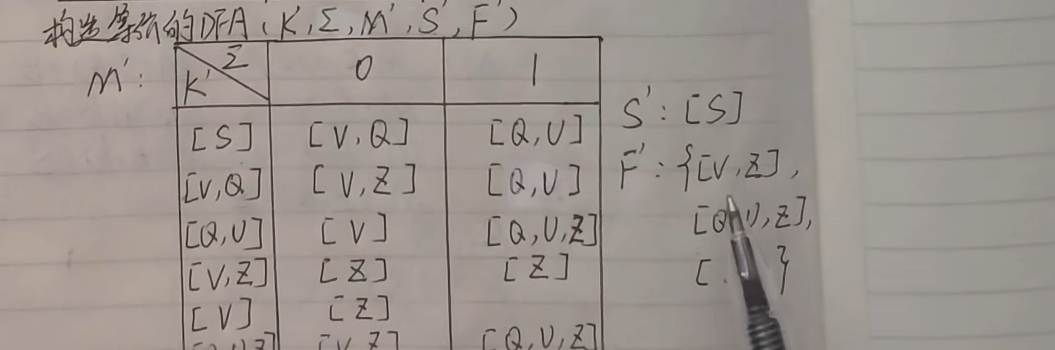 构造等价的DFA(K',Σ,M',S',F')
M':
K' Σ 0 1
[S] [V,Q] [Q,U]
[V,Q] [V,Z] [Q,U]
[Q,U] [V] [Q,U,Z]
[V,Z] [Z] [Z]
[V] [Z]
[V,Z] [Q,U,Z]
S':[S]
F':{[V,Z],
[Q,U,Z],
[. }